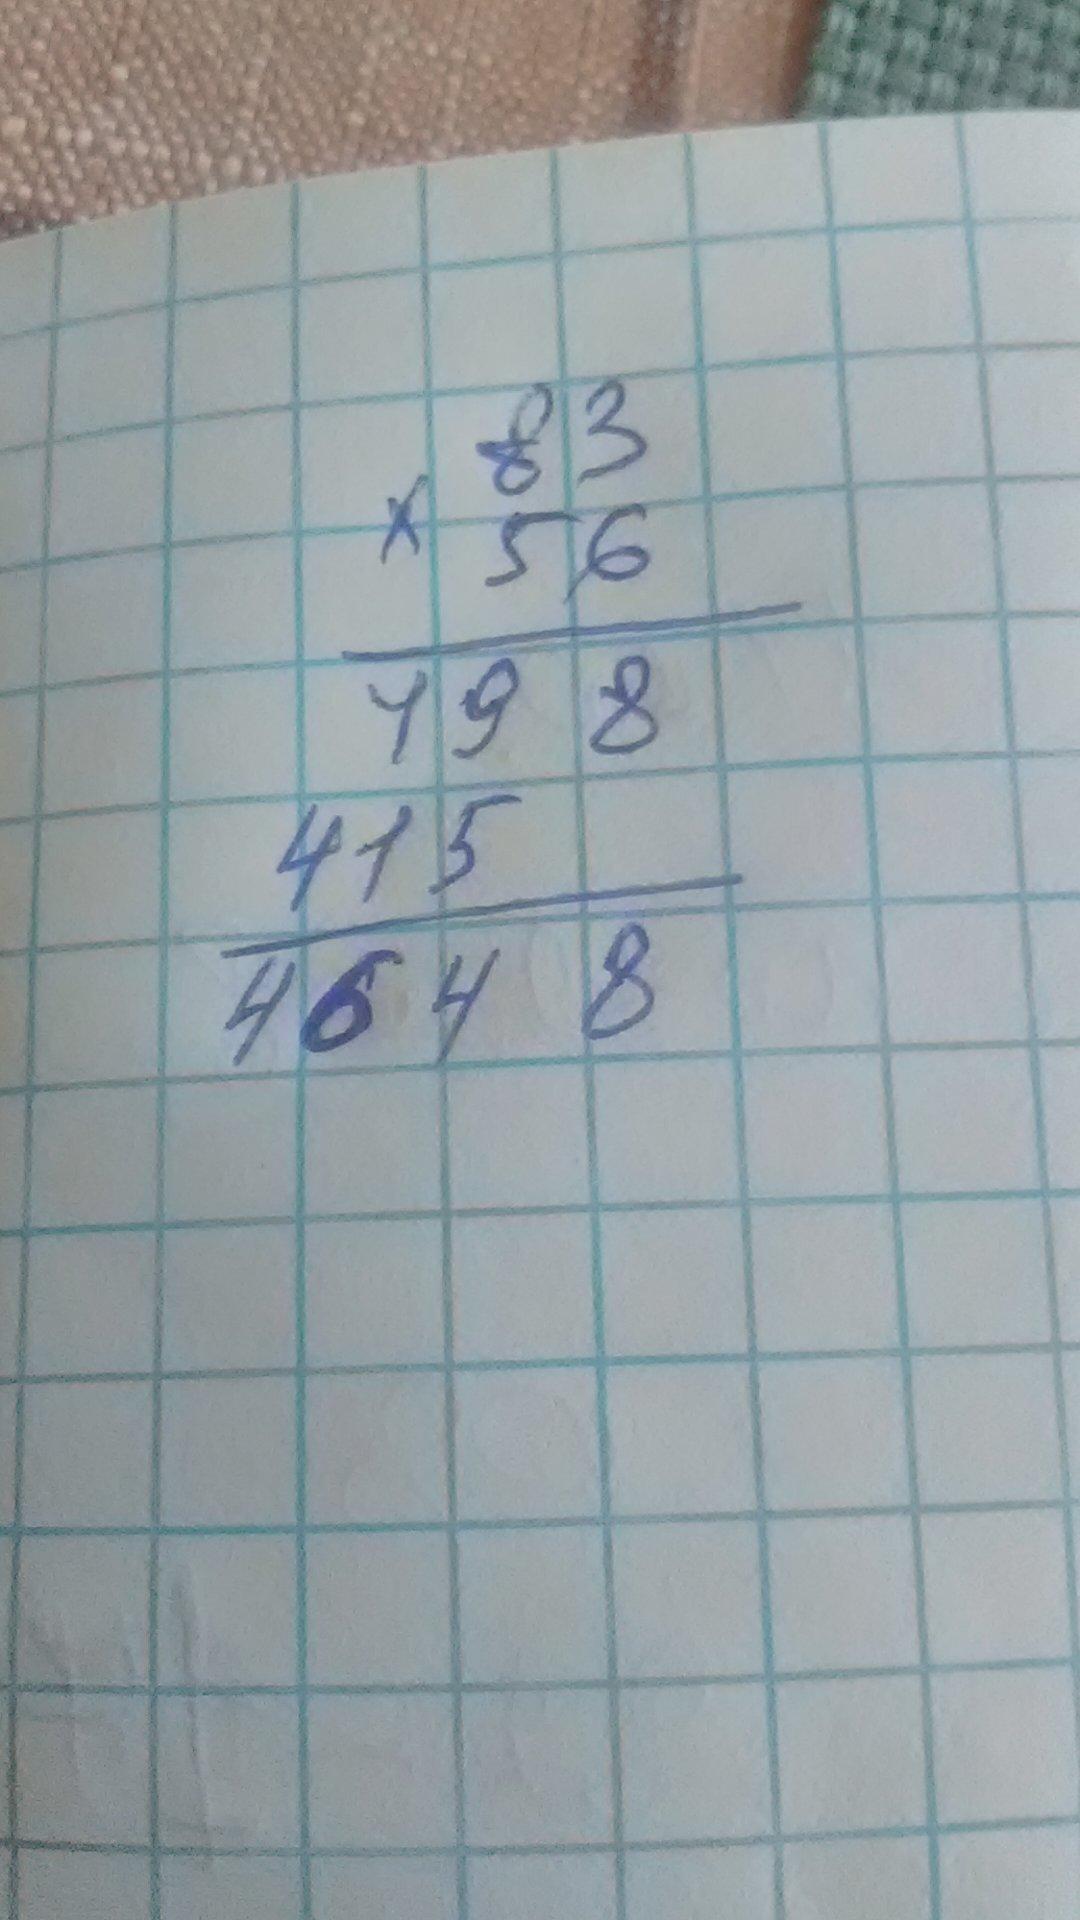 83
× 56
498
415
4648